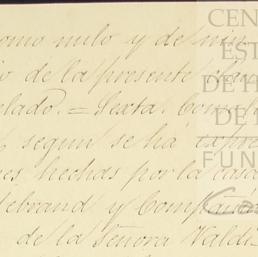 como nulo y de nin
o de la presente
lado. = Sexta. Com
segun se ha expre
es, hechas por la casa
ebrand y Compañia
de la Señora Valdi
CEN
EST
DE H
DE
FUN